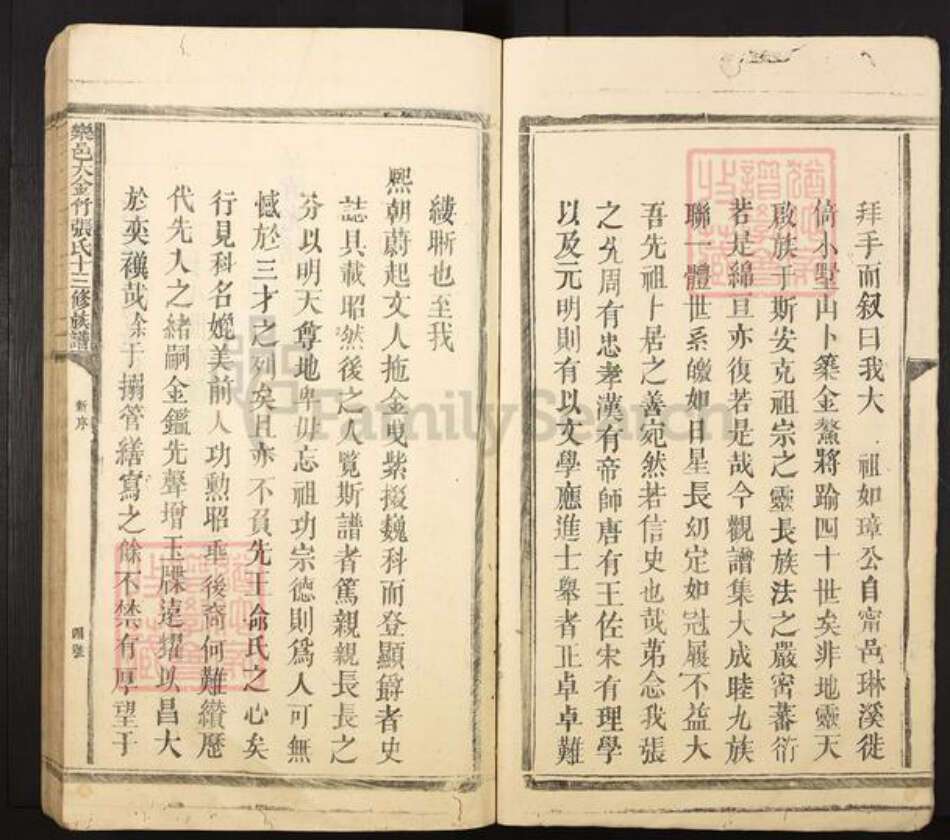 拜手而叙曰我大 祖如璋公自甯邑琳溪徙
倚小墅山卜築金鰲將踰四十世矣非地靈天
啟族于斯安克祖宗之靈長族法之嚴密蕃衍
若是綿亘亦復若是哉今觀譜集大成睦九族
聯一體世系皦如日星長幼定如冠履不益大
吾先祖卜居之善宛然若信史也哉苐念我張
之先周有忠孝漢有帝師唐有王佐宋有理學
以及元明則有以文學應進士舉者正卓卓難
縷晰也至我
熙朝蔚起文人拖金曳紫掇巍科而登顯爵者史
誌具載昭然後之人覽斯譜者篤親親長長之
分以明天尊地卑毋忘祖功宗德則爲人可無
憾於三才之列矣且亦不負先王命氏之心矣
行見科名媲美前人功勳昭乖後裔何難纘歷
代先人之緒嗣金鑑先聲增玉牒遠耀以昌大
於奕禩哉余于搦管繕寫之餘不禁有厚望于
樂邑大金竹張氏十三修族譜
新序
四號
FamilySearch